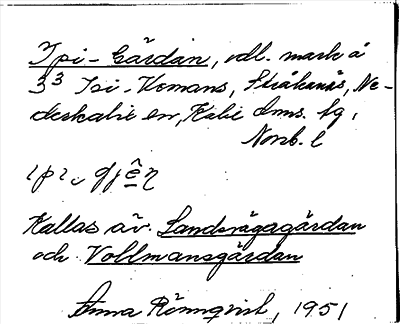 Ipi-Gärdan, odl. mark å
3³ Ipi-Hemans, Stråkanäs, Ne-
derkalix sn, Kalix dms. tg,
Norrb. l
Kallas äv. Landsvägagärdan
och Vollmansgärdan
Anna Rönnqvist, 1951